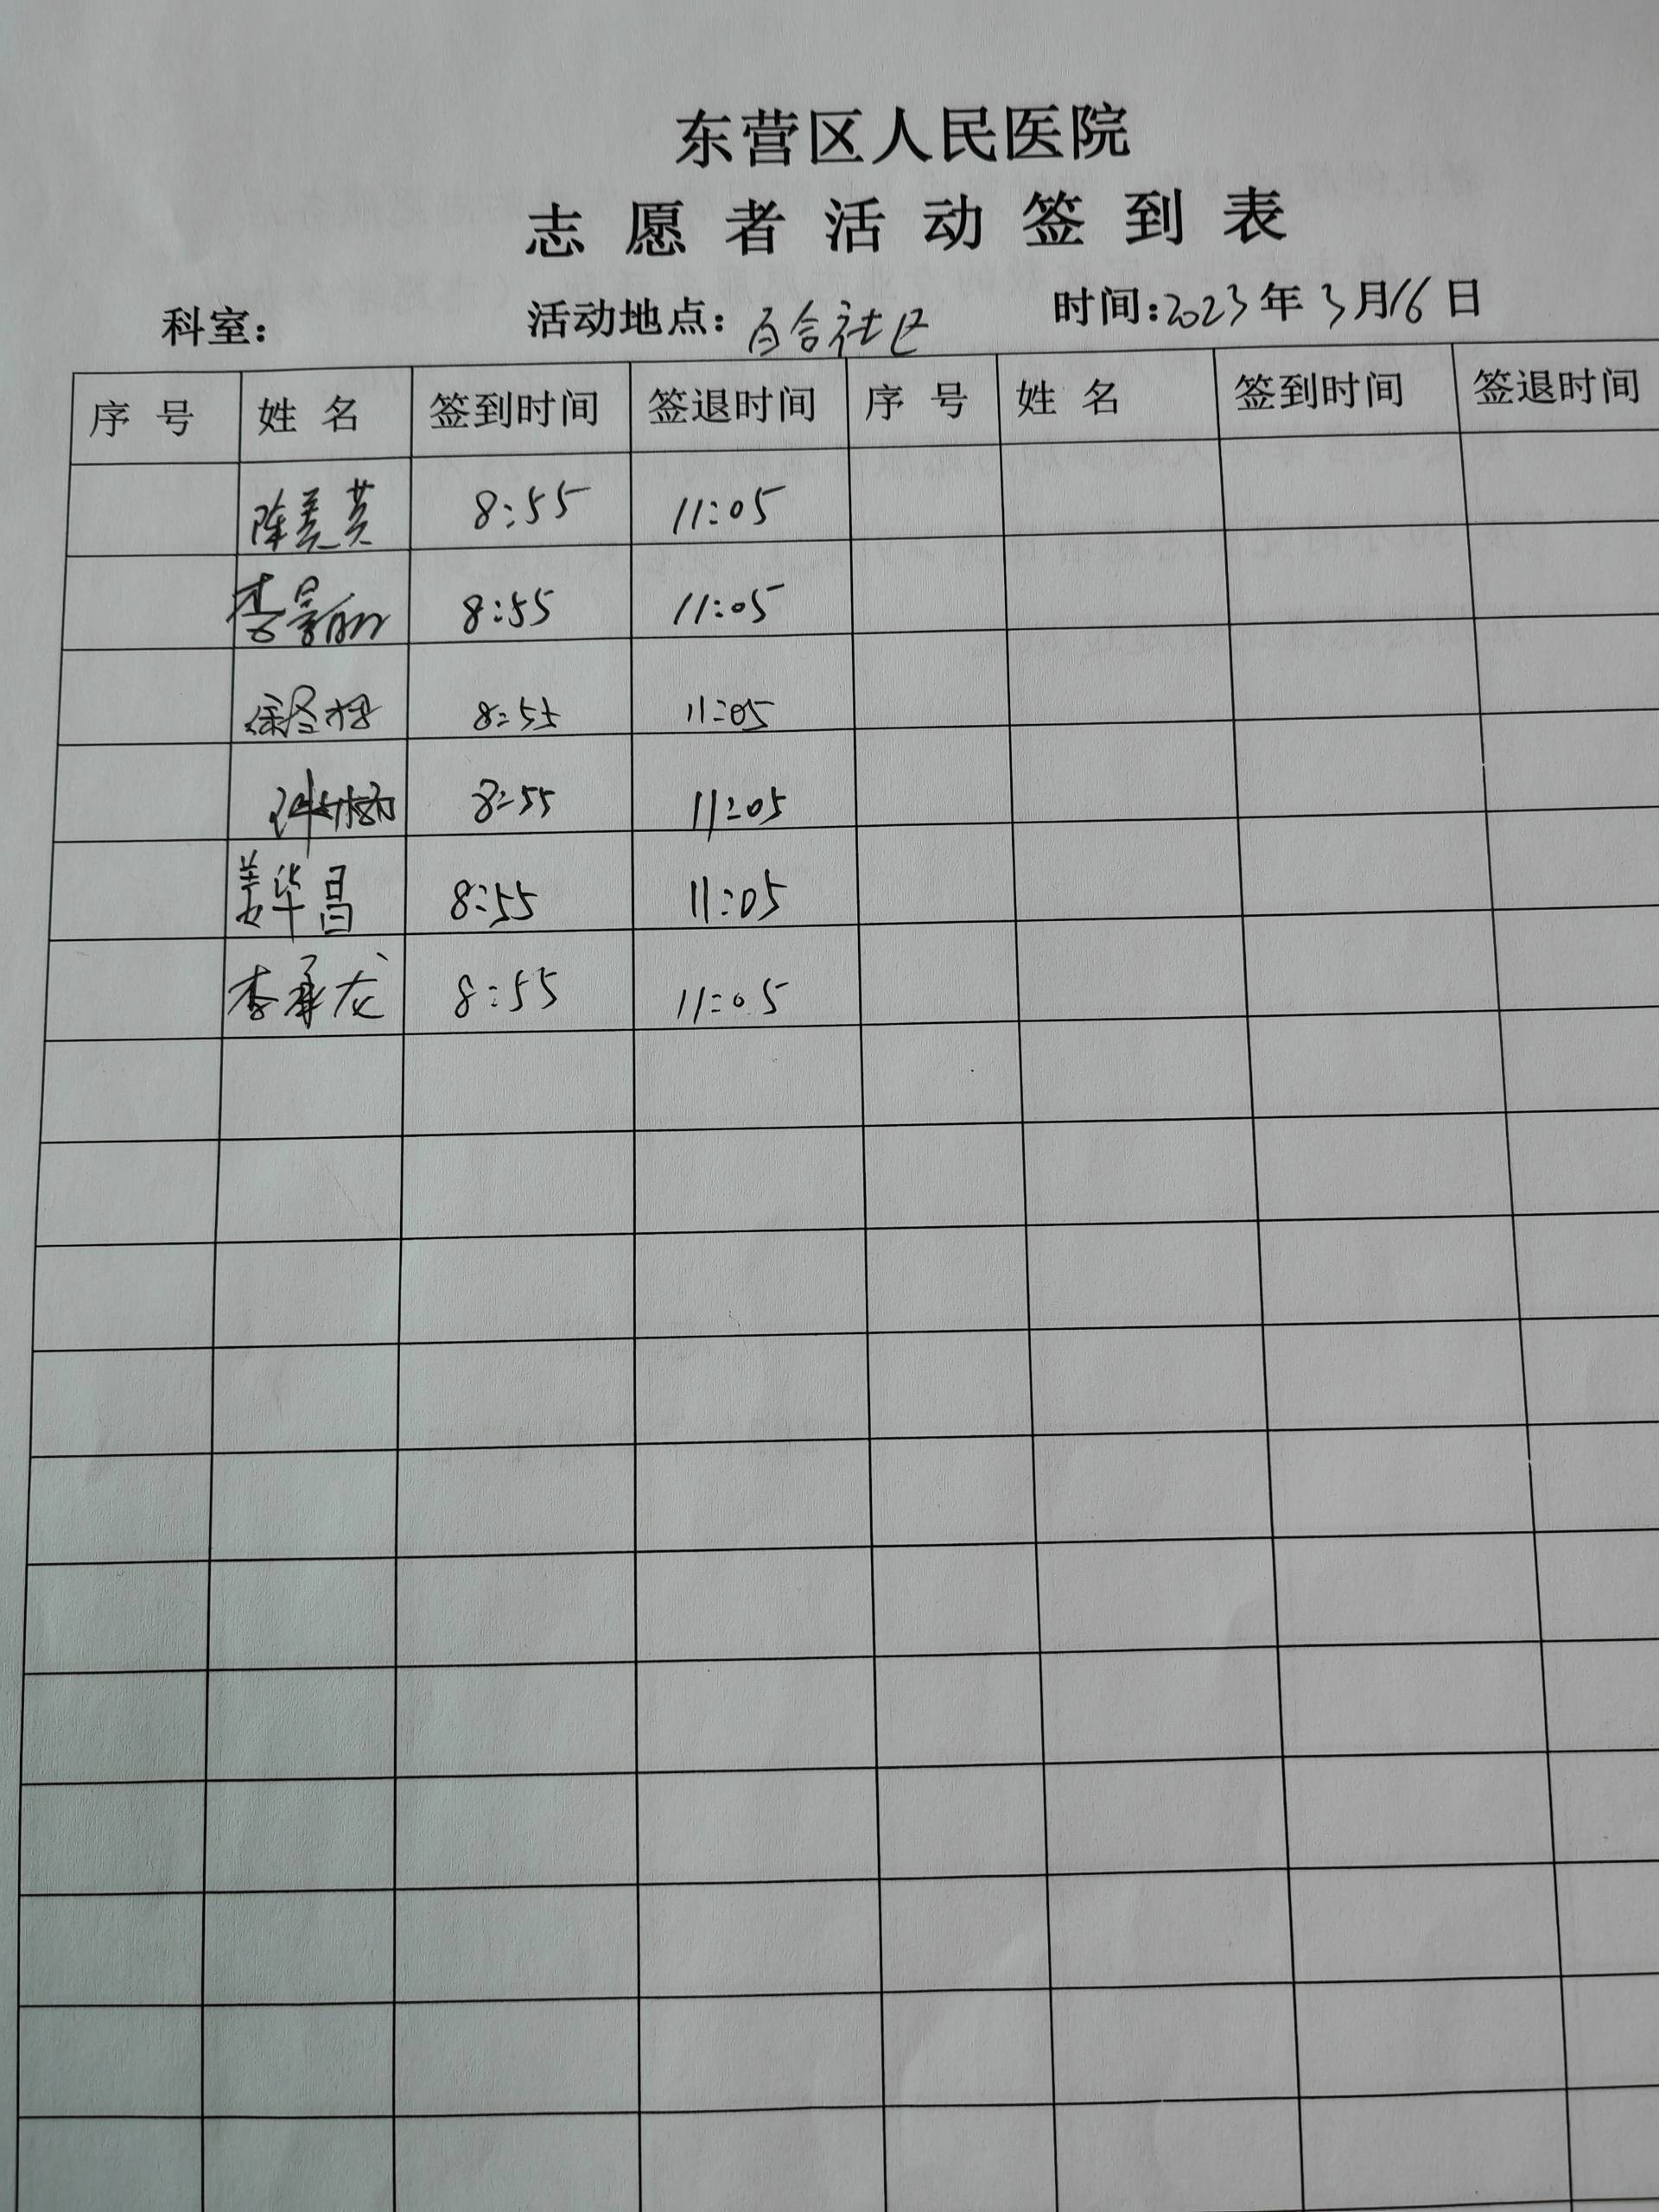 东营区人民医院
志愿者活动签到表
科室： 活动地点：百合社区 时间：2023年3月16日
序号 姓名 签到时间 签退时间 序号 姓名 签到时间 签退时间
陈美英 8:55 11:05
李景丽 8:55 11:05
8:55 11:05
8:55 11:05
姜华昌 8:55 11:05
李承龙 8:55 11:05